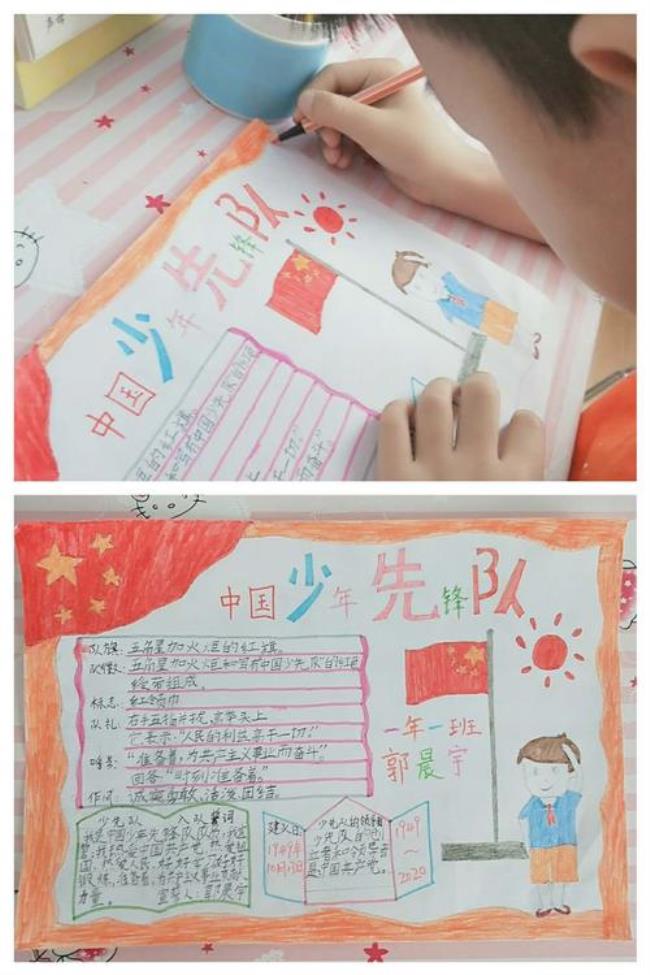 中国少年先锋队
中国少年先锋队
队旗：五角星加火炬的红旗。
队徽：五角星加火炬和写有中国少先队的红色
绶带组成。
标志：红领巾
队礼：右手五指并拢，高举头上
它表示“人民的利益高于一切”
呼号：“准备着，为共产主义事业而奋斗”。
回答“时刻准备着”。
作风：诚实勇敢、活泼、团结。
一年一班
郭晨宇
少先队 入队誓词
我是中国少年先锋队队员，我宣
誓：我热爱中国共产党，热爱祖
国，热爱人民，好好学习，好好
锻炼，准备着，为共产主义事业贡献
力量。 宣誓人：郭晨宇
建立日
1949年
10月13日
少先队的领导者
少先队的创
立者和领导者
是中国共产党。
1949
～
2020